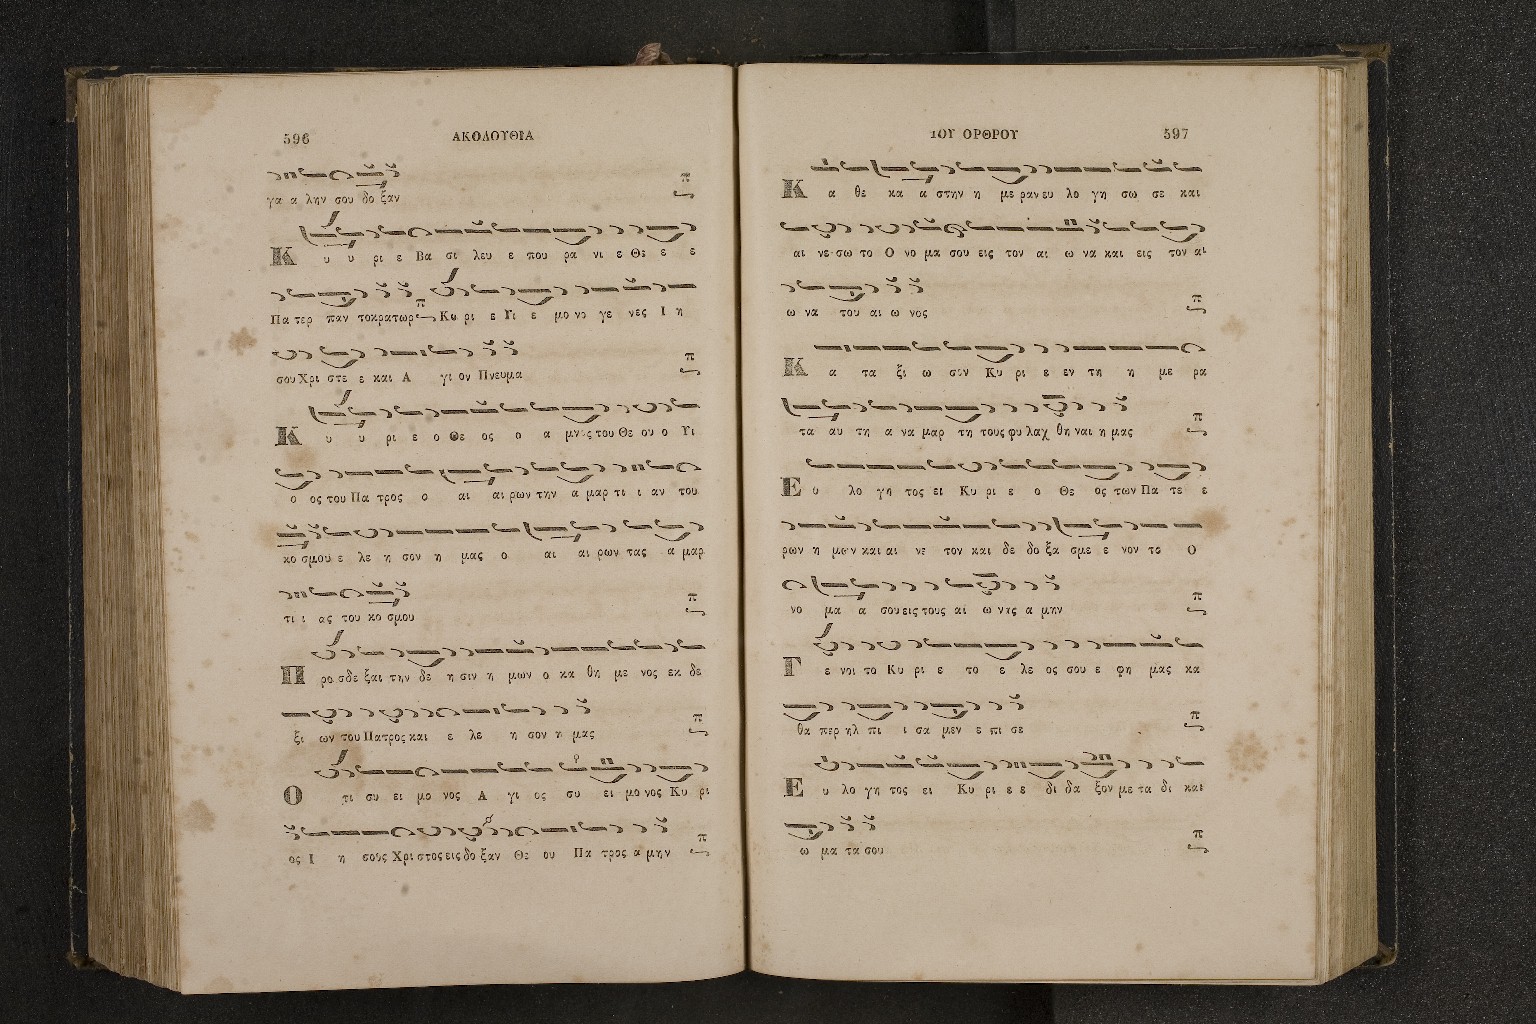 596 ΑΚΟΛΟΥΘΙΑ
γα α λην σου δο ξαν
Κ υ υ ρι ε Βα σι λευ ε που ρα νι ε Θε ε ε
Πα τερ παν τοκρατωρ Κυ ρι ε Υι ε μο νο γε νες Ι η
σου Χρι στε ε και Α γι ον Πνευμα
Κ υ υ ρι ε ο Θε ος ο α μνος του Θε ου ο Υι
ο ος του Πα τρος ο αι αι ρων την α μαρ τι ι αν του
κο σμου ε λε η σον η μας ο αι αι ρων τας α μαρ
τι ι ας του κο σμου
Π ρο σδε ξαι την δε η σιν η μων ο κα θη με νος εκ δε
ξι ων του Πατρος και ε λε η σον η μας
Ο τι συ ει μο νος Α γι ος συ ει μο νος Κυ ρι
ος Ι η σους Χρι στος εις δο ξαν Θε ου Πα τρος α μην
ΤΟΥ ΟΡΘΡΟΥ 597
Κ α θε κα α στην η με ραν ευ λο γη σω σε και
αι νε σω το Ο νο μα σου εις τον αι ω να και εις τον αι
ω να του αι ω νος
Κ α τα ξι ω σον Κυ ρι ε εν τη η με ρα
τα αυ τη α να μαρ τη τους φυ λαχ θη ναι η μας
Ε υ λο γη τος ει Κυ ρι ε ο Θε ος των Πα τε ε
ρων η μων και αι νε τον και δε δο ξα σμε ε νον το Ο
νο μα α σου εις τους αι ω νας α μην
Γ ε νοι το Κυ ρι ε το ε λε ος σου ε φη μας κα
θα περ ηλ πι ι σα μεν ε πι σε
Ε υ λο γη τος ει Κυ ρι ε ε δι δα ξον με τα δι και
ω μα τα σου